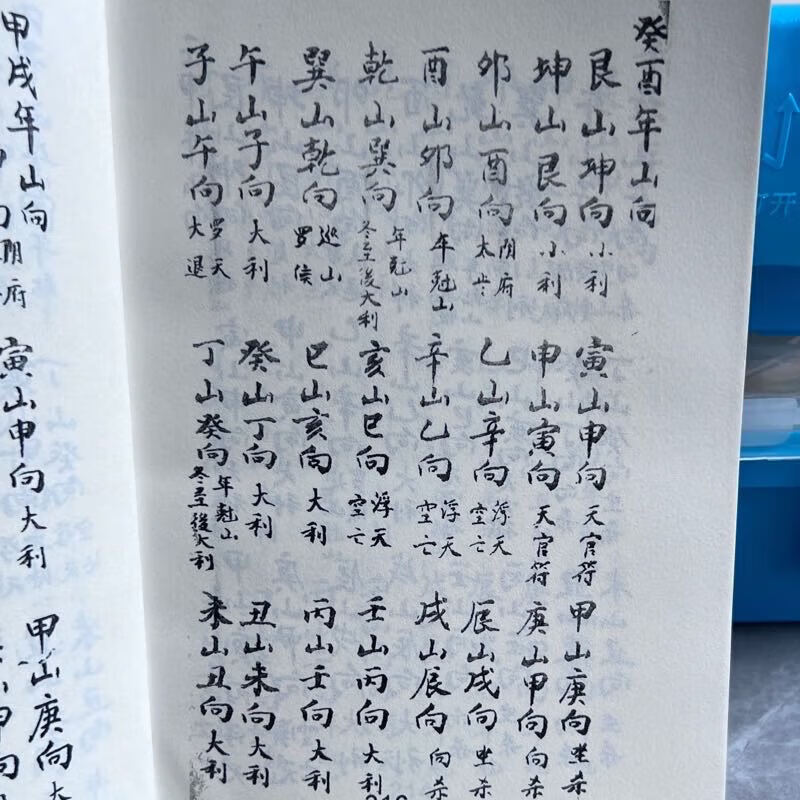 癸酉年山向
艮山坤向 小利
坤山艮向 小利
卯山酉向 阴府太岁
酉山卯向 年尅山
乾山巽向 年尅山冬至後大利
巽山乾向 巡山罗侯
午山子向 大利
子山午向 罗天大退
寅山申向 天官符
申山寅向 天官符
乙山辛向 浮天空亡
辛山乙向 浮天空亡
亥山巳向 浮天空亡
巳山亥向 大利
癸山丁向 大利
丁山癸向 年尅山冬至後大利
甲山庚向 坐杀
庚山甲向 向杀
辰山戌向 坐杀
戌山辰向 向杀
壬山丙向 大利
丙山壬向 大利
丑山未向 大利
未山丑向 大利
甲戌年山向
阴府
寅山申向 大利
甲山庚向 大